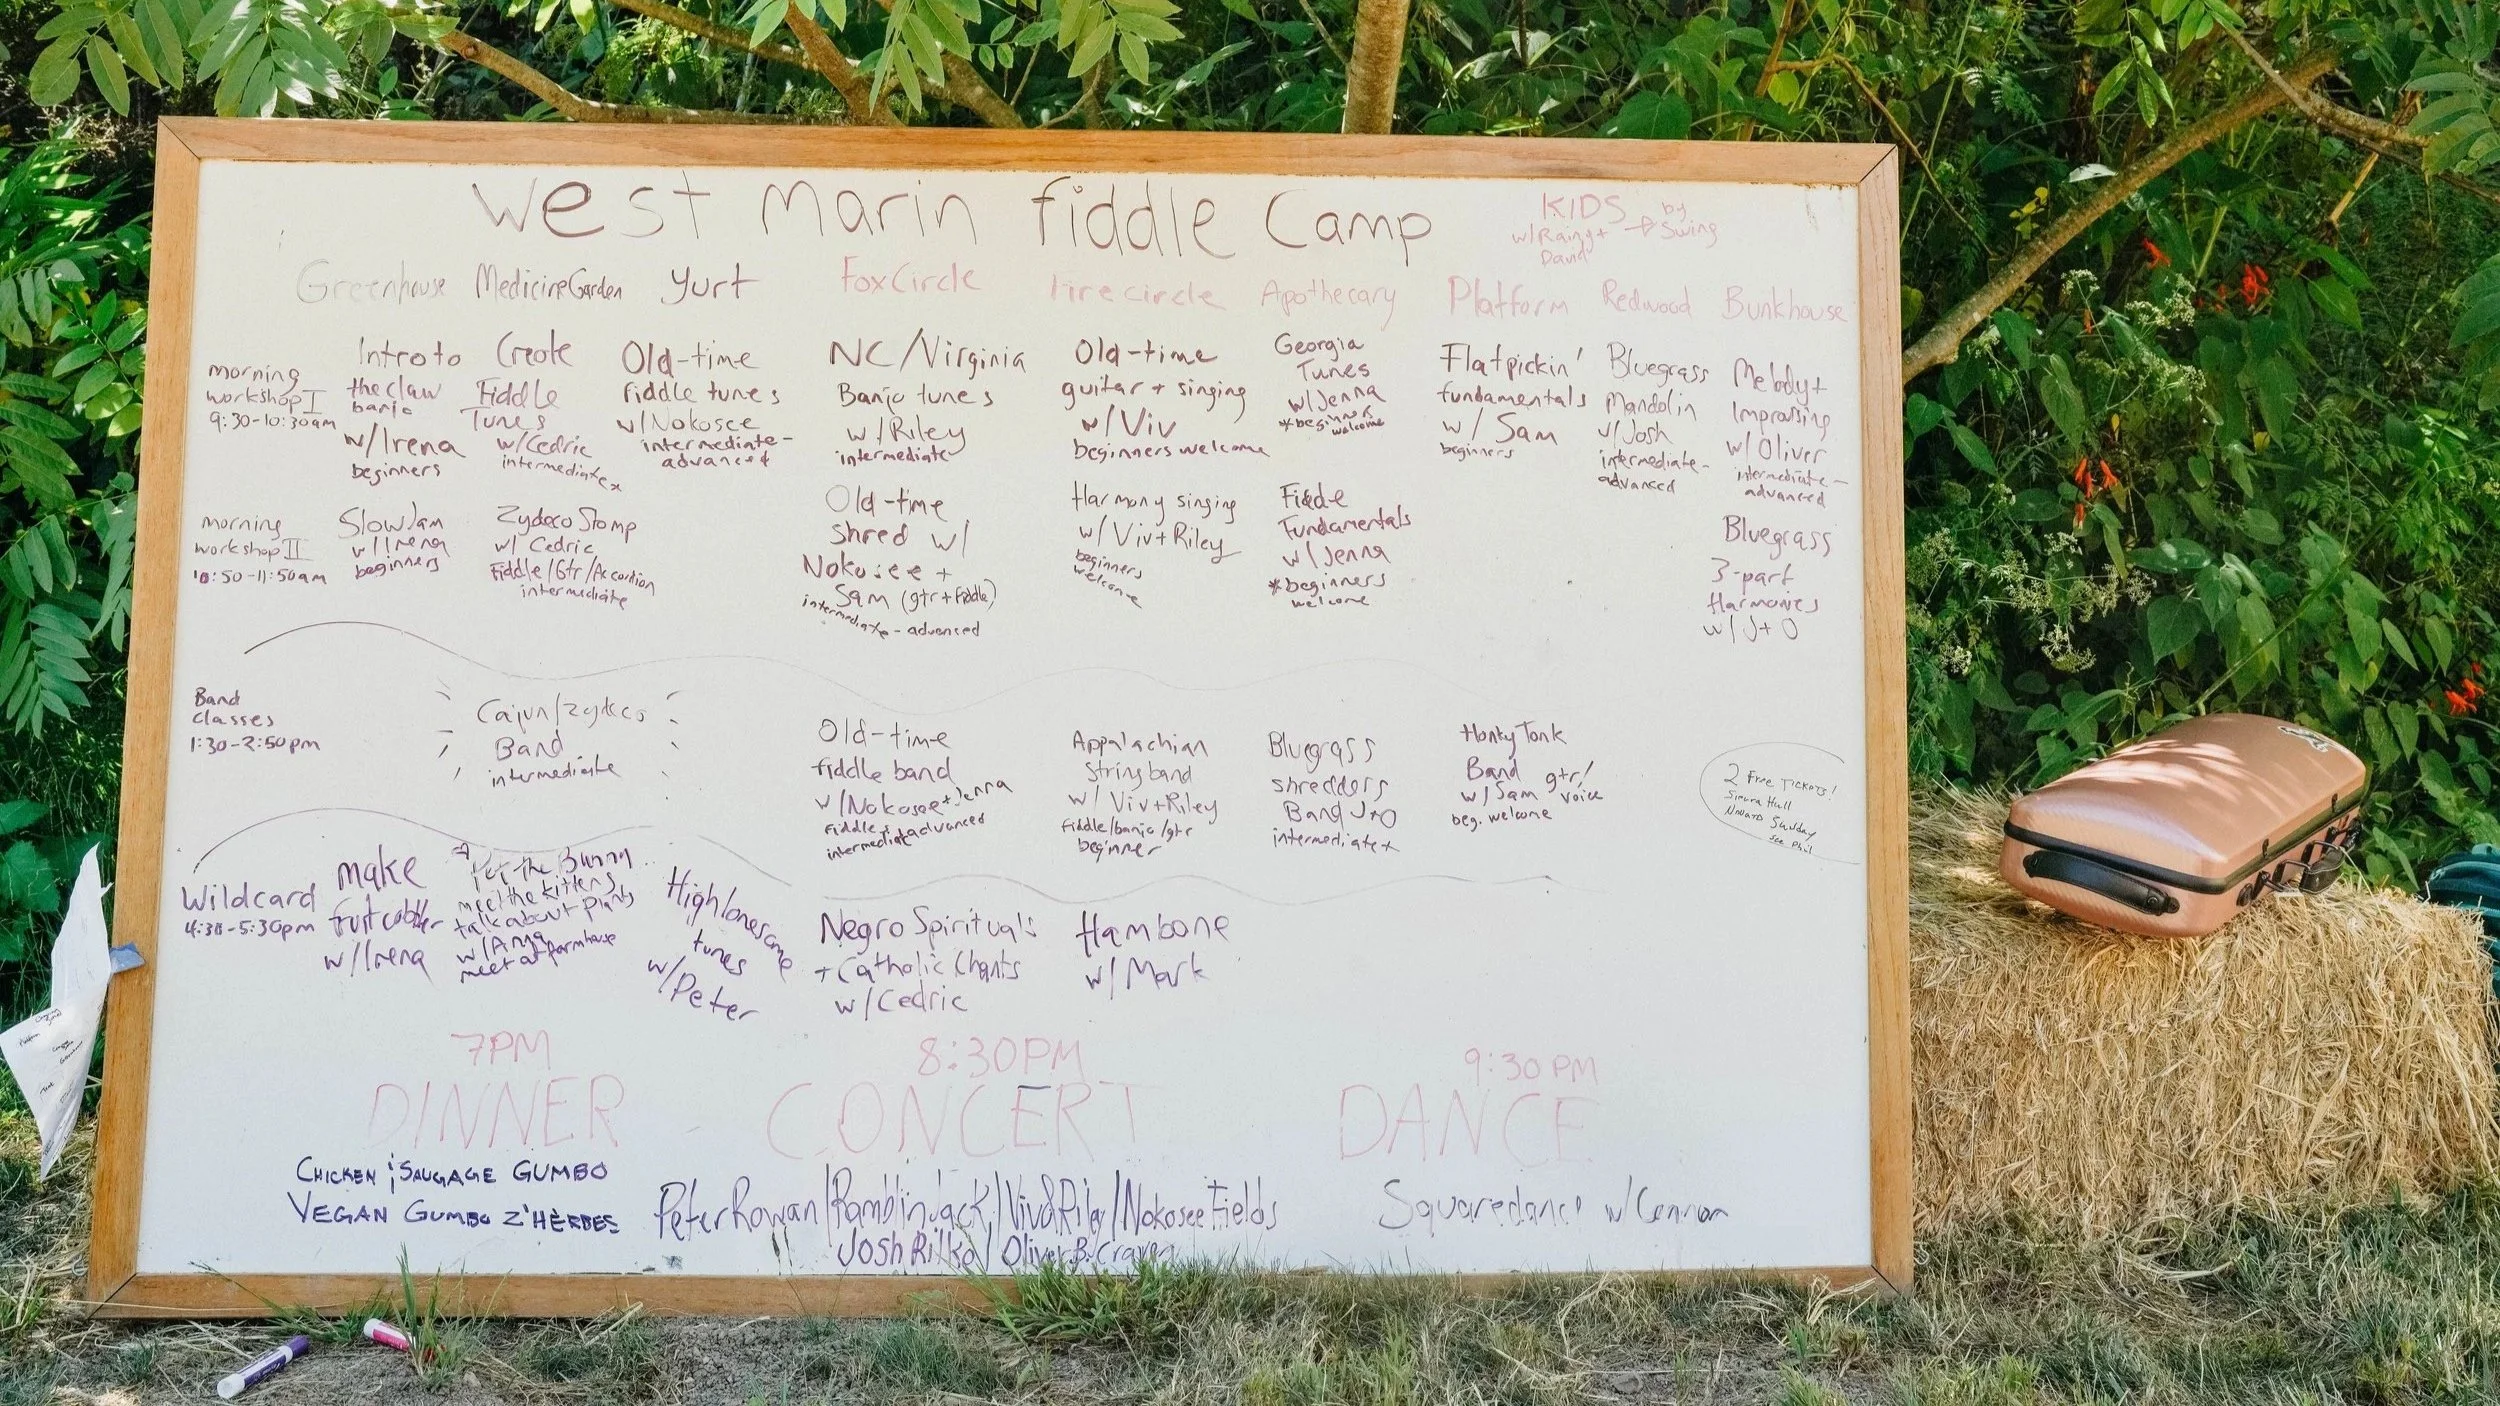 West Marin Fiddle Camp
KIDS
w/Rainy +
David
by
Swing
Greenhouse
Medicine Garden
Yurt
Fox Circle
Fire circle
Apothecary
Platform
Redwood
Bunkhouse
morning
workshop I
9:30-10:30am
Intro to
the claw
banjo
w/Irena
beginners
Creole
Fiddle
Tunes
w/Cedric
intermediate
Old-time
fiddle tunes
w/Nokosee
intermediate-
advanced
NC/Virginia
Banjo tunes
w/Riley
intermediate
Old-time
guitar + singing
w/Viv
beginners welcome
Georgia
Tunes
w/Jenna
*beginners
welcome
Flatpickin'
fundamentals
w/ Sam
beginners
Bluegrass
Mandolin
w/Josh
intermediate-
advanced
Melody +
Improvising
w/Oliver
intermediate-
advanced
morning
workshop II
10:50-11:50am
Slow Jam
w/Irena
beginners
Zydeco Stomp
w/ Cedric
Fiddle/Gtr/Accordion
intermediate
Old-time
shred w/
Nokosee +
Sam (gtr + fiddle)
intermediate-advanced
Harmony singing
w/Viv+Riley
beginners
welcome
Fiddle
Fundamentals
w/Jenna
*beginners
welcome
Bluegrass
3-part
Harmonies
w/ J+O
Band
Classes
1:30-2:50pm
Cajun/Zydeco
Band
intermediate
Old-time
fiddle band
w/Nokosee+Jenna
fiddles
intermediate advanced
Appalachian
Stringband
w/ Viv+Riley
fiddle/banjo/gtr
beginner
Bluegrass
shredders
Band J+O
intermediate+
Honky Tonk
Band gtr/
w/Sam voice
beg. welcome
2 Free Tickets!
Sierra Hull
Novato Sunday
see Phil
Wildcard
4:30-5:30pm
make
fruit cobbler
w/Irena
Pet the Bunny
meet the kittens
talk about plants
w/Anya
meet at farmhouse
High lonesome
tunes
w/Peter
Negro Spirituals
+ Catholic Chants
w/Cedric
Hambone
w/Mark
7PM
DINNER
8:30PM
CONCERT
9:30PM
DANCE
CHICKEN ; SAUGAGE GUMBO
VEGAN GUMBO Z'HERBES
Peter Rowan/Ramblin Jack/Viv&Riley/Nokosee Fields
Josh Rilko/Oliver B. Craven
Squaredance w/